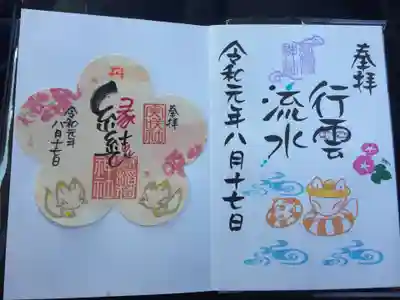 奉拝
行雲
流水
令和元年八月十七日
奉拝
縁結
令和元年
八月十七日